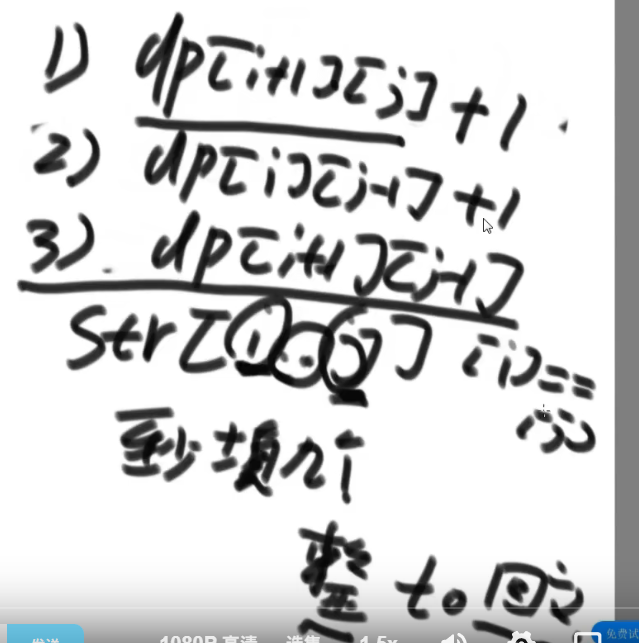 1) dp[i+1][j]+1
2) dp[i][j-1]+1
3) dp[i+1][j-1]
str[i..j] [i]==
[j]
至少填几个
整 to 回文
1080P 高清 选集 1.5x
免费试